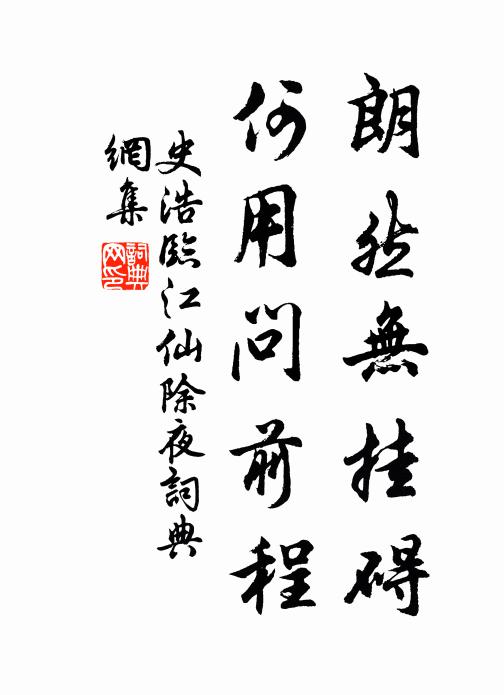 朗然無挂碍
何用問前程
史浩臨江仙除夜詞典
網集
詞典
网印